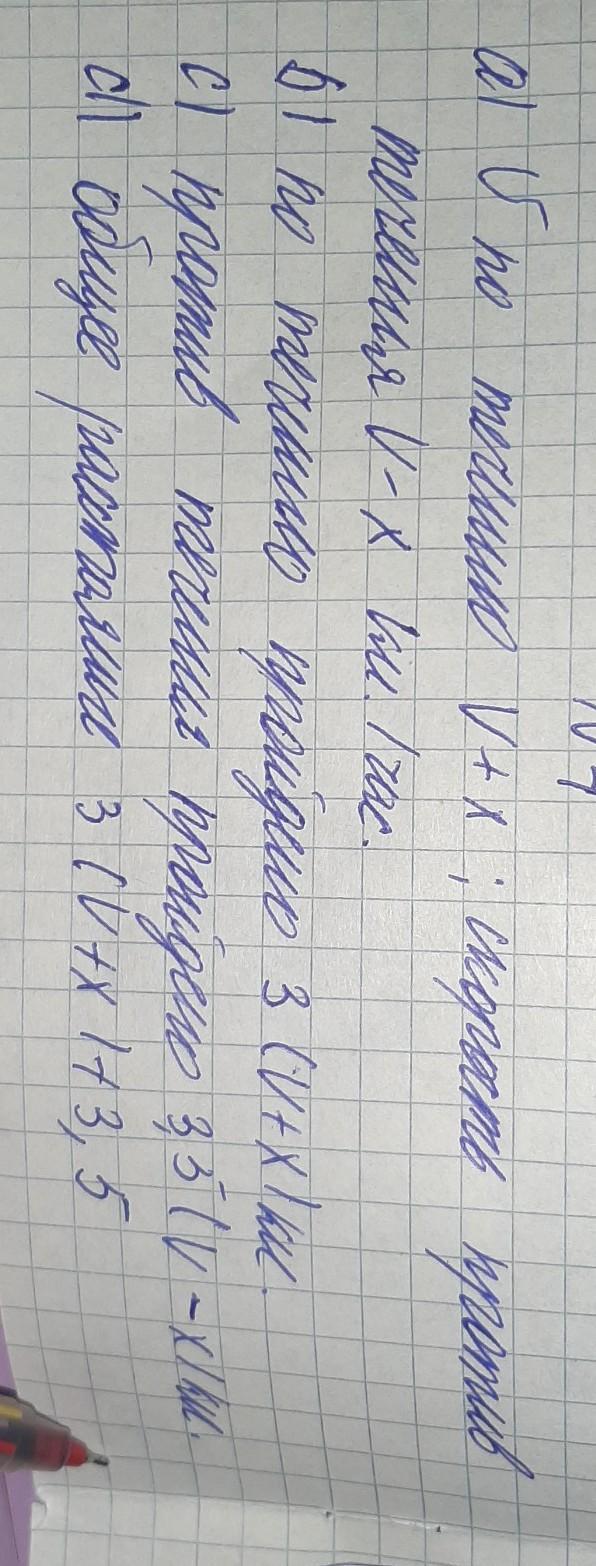 N 7
a) V по течению V + x ; скорость против
течения V - x км. / час.
б) по течению пройдено 3 (V + x) км.
c) против течения пройдено 3,5 (V - x) км.
d) общее расстояние 3 (V + x) + 3,5